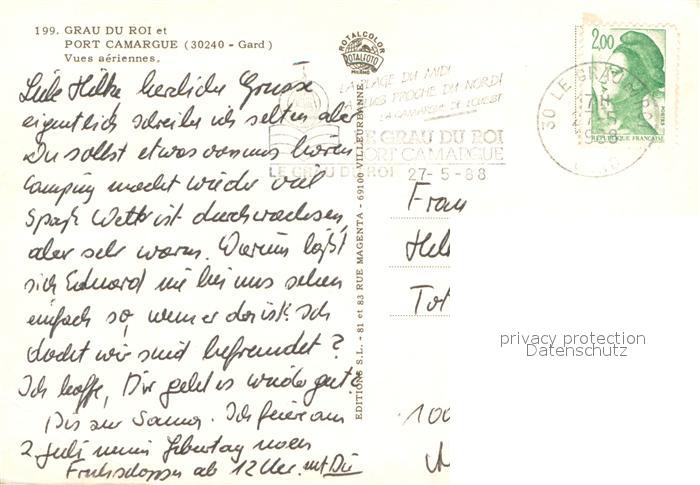 199. GRAU DU ROI et
PORT CAMARGUE (30240 - Gard)
Vues aériennes.
ROTALCOLOR
ROTALFOTO
MILANO
LA PLAGE DU MIDI
PLUS PROCHE DU NORD!
LA CAMARGUE DE L'OUEST
LE GRAU DU ROI
PORT CAMARGUE
LE GRAU DU ROI 27-5-88
30 LE GRAU DU ROI
1988
2,00
REPUBLIQUE FRANÇAISE
EDITIONS S.L. - 81 et 83 RUE MAGENTA - 69100 VILLEURBANNE
Liebe Hilke herzliche Grüsse
eigentlich schreibe ich selten aber
Du sollst etwas von uns hören
Camping macht wieder viel
Spaß Wetter ist durchwachsen,
aber sehr warm. Warum läßt
sich Eduard nie bei uns sehen
einfach so, wenn er da ist. Ich
dacht wir sind befreundet?
Ich hoffe, Dir geht es wieder gut.
Bis zur Ich feiere am
2 Juli meinen Geburtag
Frühschoppen ab 12 Uhr. mit Dir
Frau
Hel
Tot
100
privacy protection
Datenschutz